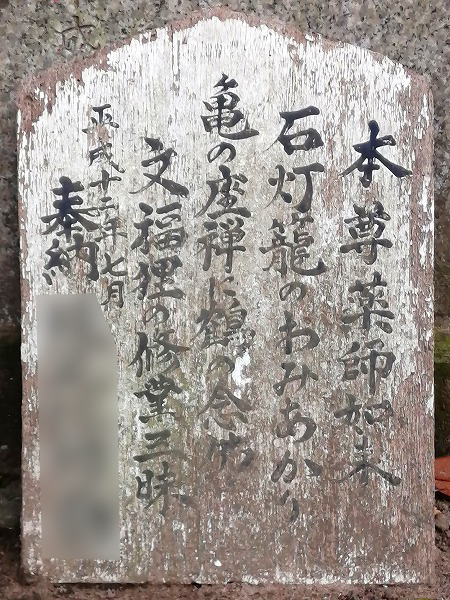 本尊薬師如来
石灯籠のおみあかり
亀の座禅に鶴の念仏
文福狸の修業三昧
平成十二年七月
奉納